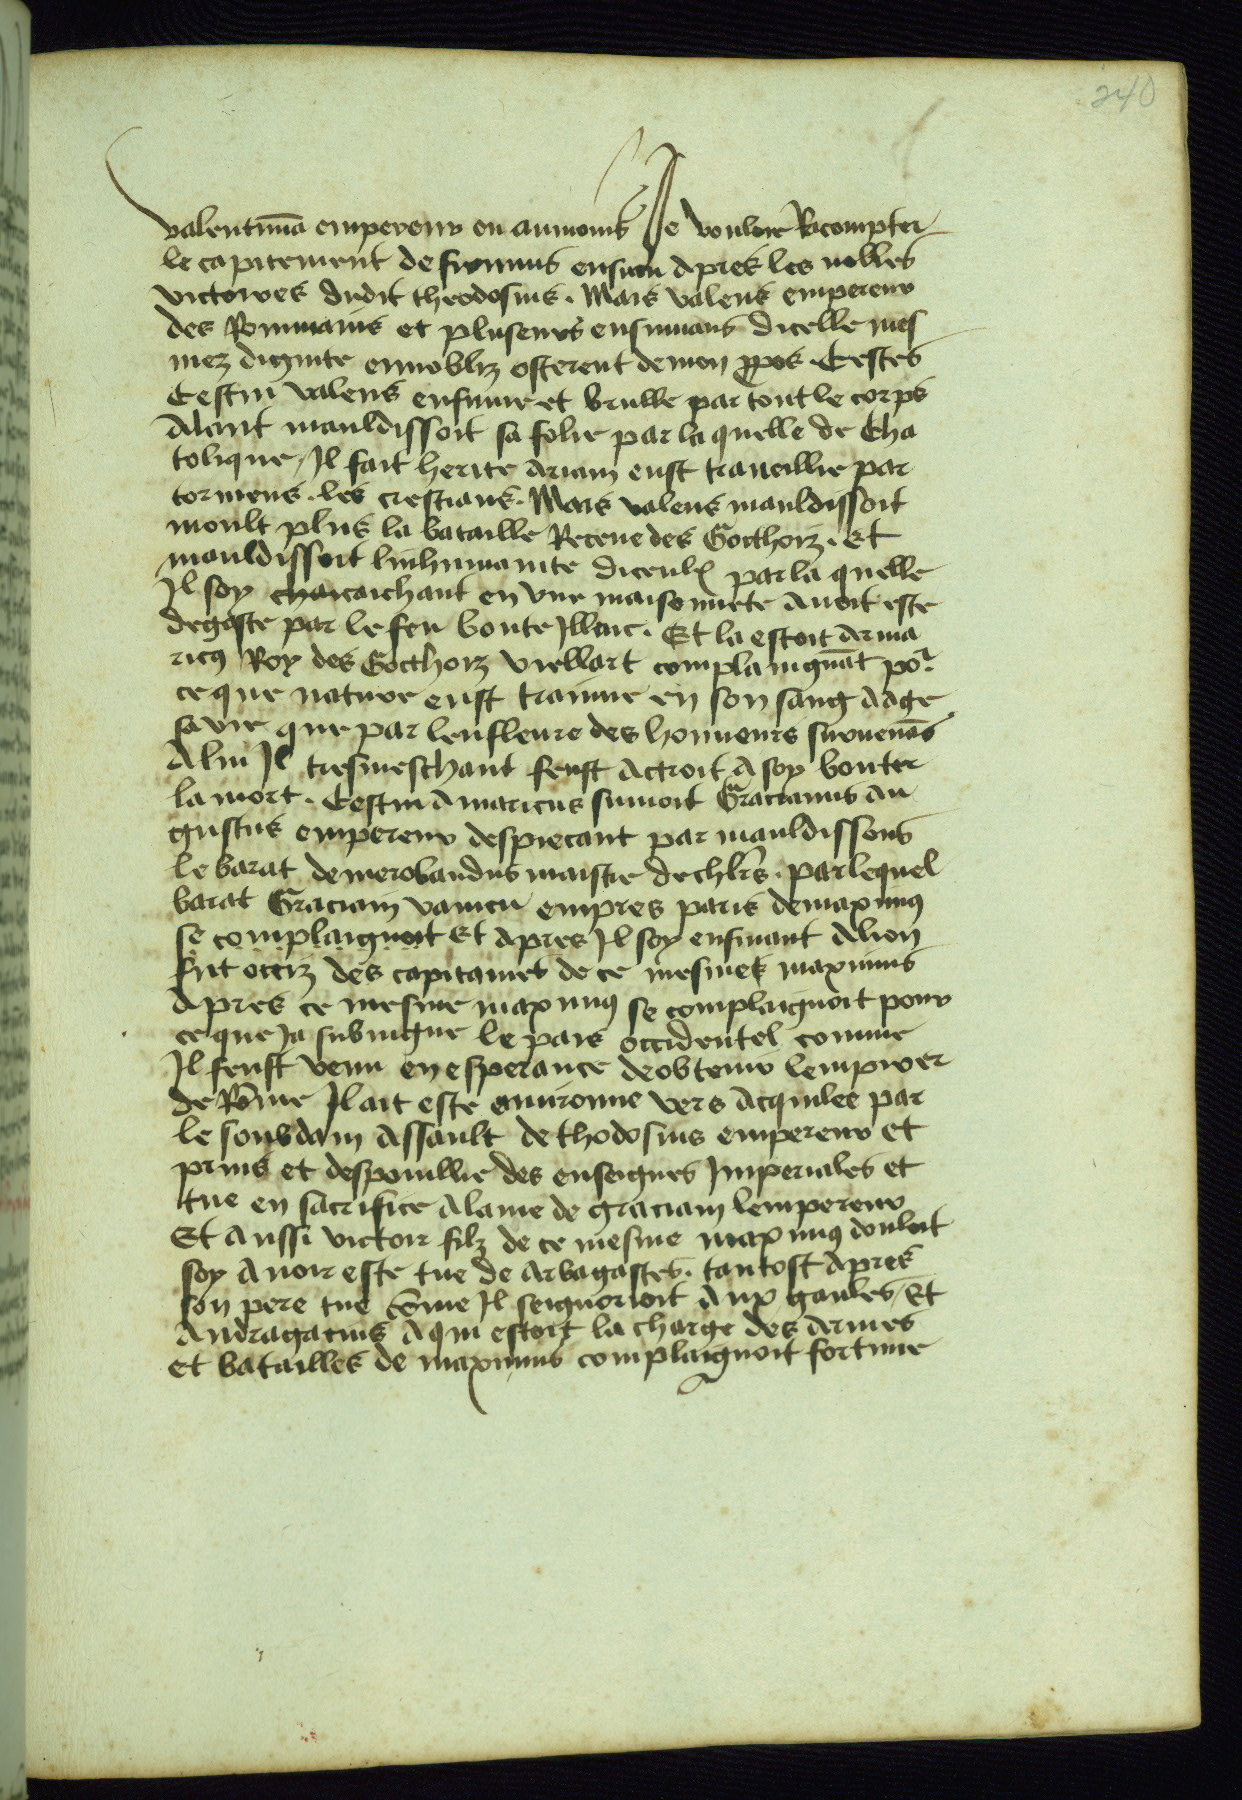 240
valentinia᷃ empereur en aumonis Je vouloie Racompter
le capitement de firmus ensuiu Apres les nobles
victoires dudit theodosius . Mais valens empereur
des Rommains et pluseurs ensuiuans dicelle mes
mez dignite ennobliz osterent de mon ppos . Testes
Cestui valens enfume et brulle par tout le corps
Alant mauldissoit sa folie par la quelle de Cha
tolique / Il fait herite arriain eust traueillie par
tormens . les crestians . Mais valens mauldissoit
moult plus la bataille Receue des Gotthoiz . Et
mauldissoit linhumanite diceulx par la quelle
Il soy chataichant en vne maisonnete Auoit este
degaste par le feu boute Illeuc . Et la estoit Arma
ricus Roy des Gotthoiz viellart complaingna᷃t por
ce que nature eust trainne en son sang Aage
sa vie que par lenfleure des honneurs suruena᷃s
Alui Il tresmeschant feust Actroit A soy bouter
la mort . Cestui Amaricus suiuoit Gracianus Au
gustus empereur despiecant par mauldissons
le barat de merobaudus maistre de chlrs . par lequel
barat Gracian vaincu empres paris de maximus
se complaignoit Et Apres Il soy enfuiant A lion
fut occiz des capitaines de ce mesmes maximus
Apres ce mesme maximus se complaignoit pour
ce que Ja subiugue le pais occidentel comme
Il feust venu en esperance de obtenir lempirer
de Ro᷃me Il ait este enuironne vers Acquilee par
le soubdain Assault de thodosius empereur et
prins et despouillie des enseignes Imperiales et
tue en sacrifice A lame de gracian lempereur
Et Aussi victoir filz de ce mesme maximus douloit
soy Auoir este tue de Arbagastes . tantost Apres
son pere tue Co᷃me Il seignorioit Aux gaules / Et
Andragacius A qui estoit la charge des Armes
et batailles de maximus complaignoit fortune